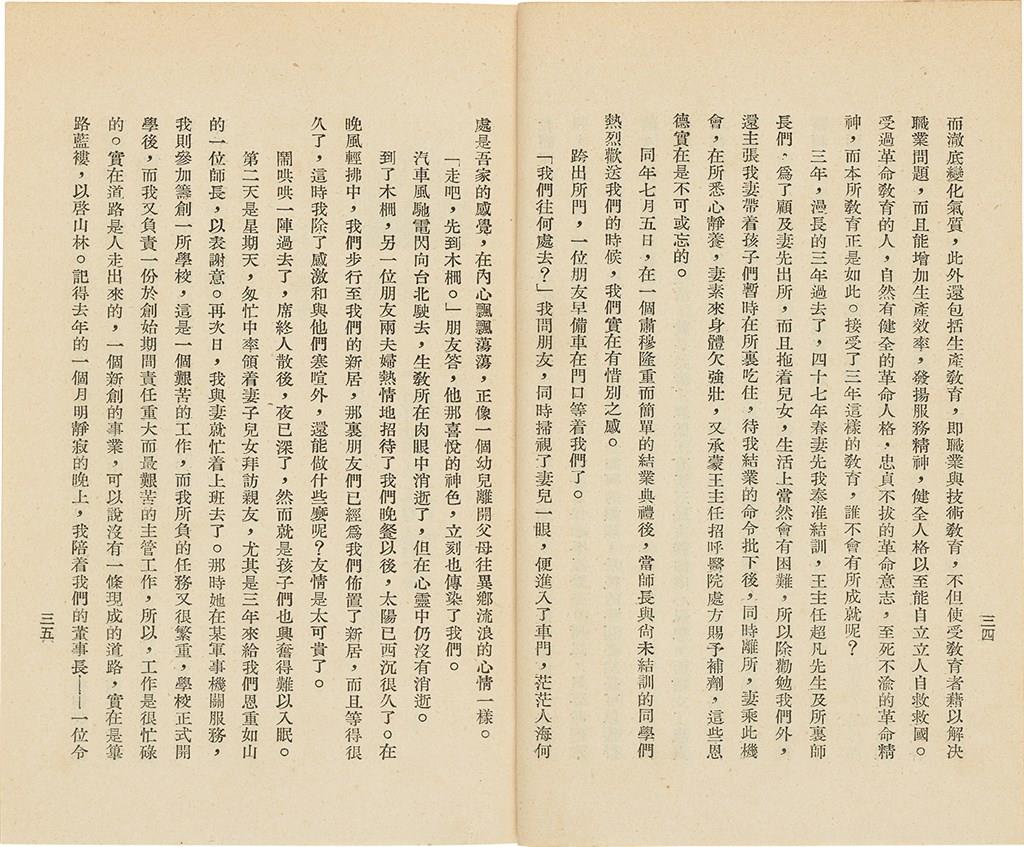 三四
而澈底變化氣質，此外還包括生產教育，即職業與技術教育，不但使受教育者藉以解決
職業問題，而且能增加生產效率，發揚服務精神，健全人格以至能自立立人自救救國。
受過革命教育的人，自然有健全的革命人格，忠貞不拔的革命意志，至死不渝的革命精
神，而本所教育正是如此。接受了三年這樣的教育，誰不會有所成就呢？
三年，漫長的三年過去了，四十七年春妻先我奉准結訓，王主任超凡先生及所裏師
長們，爲了顧及妻先出所，而且拖着兒女，生活上當然會有困難，所以除勸勉我們外，
還主張我妻帶着孩子們暫時在所裏吃住，待我結業的命令批下後，同時離所，妻乘此機
會，在所悉心靜養，妻素來身體欠強壯，又承蒙王主任招呼醫院處方賜予補劑，這些恩
德實在是不可或忘的。
同年七月五日，在一個肅穆隆重而簡單的結業典禮後，當師長與尙未結訓的同學們
熱烈歡送我們的時候，我們實在有惜別之感。
跨出所門，一位朋友早備車在門口等着我們了。
「我們往何處去？」我問朋友，同時掃視了妻兒一眼，便進入了車門，茫茫人海何
處是吾家的感覺，在內心飄飄蕩蕩，正像一個幼兒離開父母往異鄉流浪的心情一樣。
「走吧，先到木柵。」朋友答，他那喜悅的神色，立刻也傳染了我們。
汽車風馳電閃向台北駛去，生教所在肉眼中消逝了，但在心靈中仍沒有消逝。
到了木柵，另一位朋友兩夫婦熱情地招待了我們晚餐以後，太陽已西沉很久了。在
晚風輕拂中，我們步行至我們的新居，那裏朋友們已經爲我們佈置了新居，而且等得很
久了，這時我除了感激和與他們寒喧外，還能做什些麼呢？友情是太可貴了。
鬧哄哄一陣過去了，席終人散後，夜已深了，然而就是孩子們也興奮得難以入眠。
第二天是星期天，匆忙中率領着妻子兒女拜訪親友，尤其是三年來給我們恩重如山
的一位師長，以表謝意。再次日，我與妻就忙着上班去了。那時她在某軍事機關服務，
我則參加籌創一所學校，這是一個艱苦的工作，而我所負的任務又很繁重，學校正式開
學後，而我又負責一份於創始期間責任重大而最艱苦的主管工作，所以，工作是很忙碌
的。實在道路是人走出來的，一個新創的事業，可以說沒有一條現成的道路，實在是篳
路藍褸，以啓山林。記得去年的一個月明靜寂的晚上，我陪着我們的董事長——一位令
三五